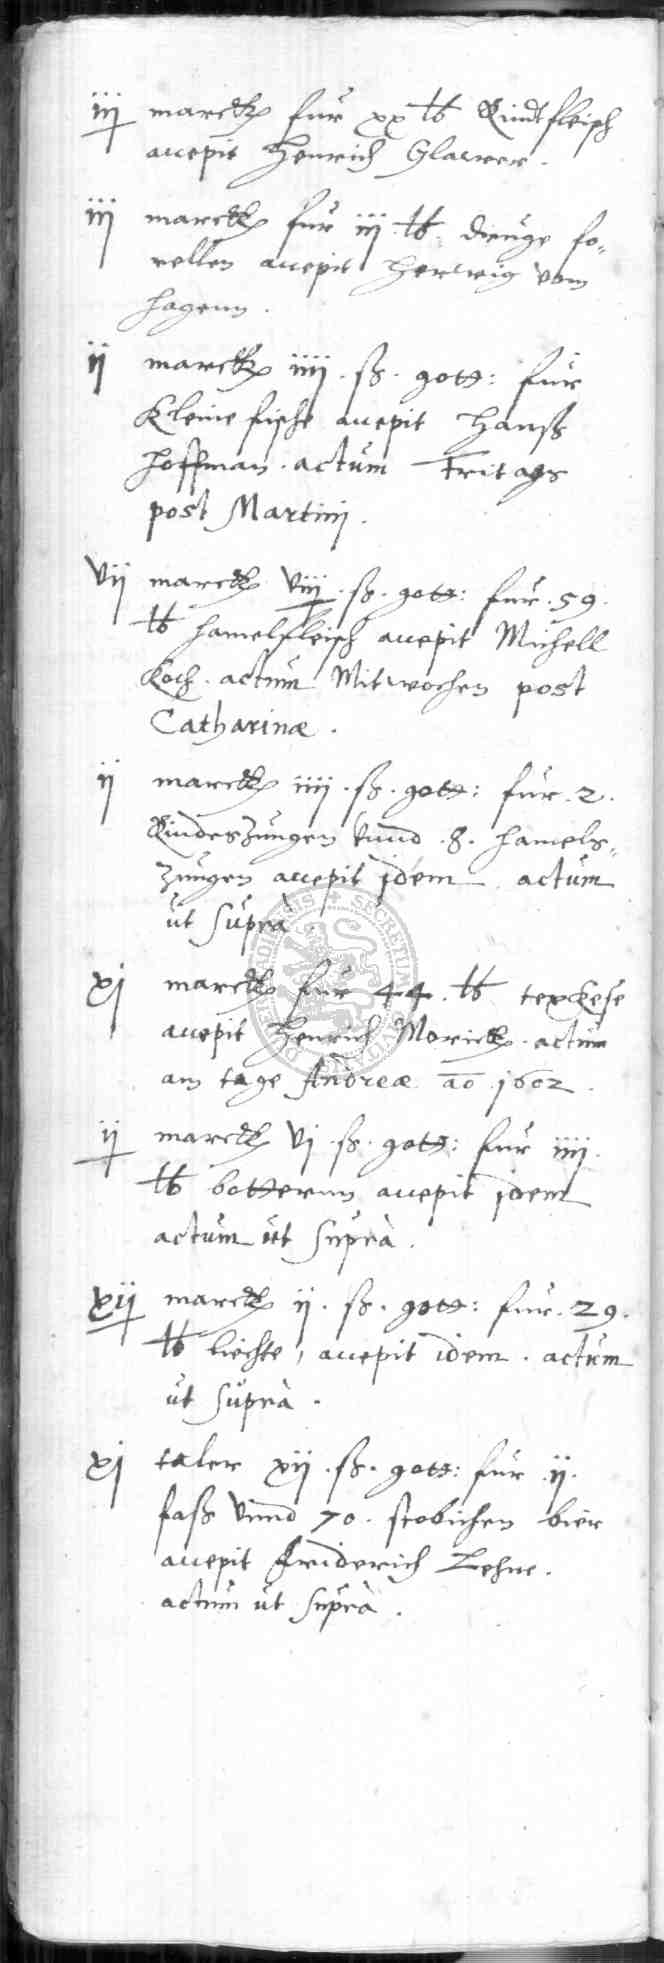 iij marck fur xx lb Rindtfleisch
accepit Henrich Glawer.
iij marck fur iij. lb. dreuge fo-
rellen accepit Herwig vom
Hagenn.
ij marck iiij. ß. gott: fur
kleine fische accepit Hanß
Hoffman. actum Fritags
post Martini.
vij marck viij. ß. gott: fur. 59.
lb hamelfleisch accepit Michell
Koch. actum Mitwochen post
Catharinæ.
ij marck iiij. ß. gott: fur. 2.
Rindeszungen vnnd .8. hamels-
zungen accepit idem actum
ut suprà.
xj marck fur 44. lb texkese
accepit Henrich Morick. actum
am tage Andreæ ao 1602.
ij marck vj. ß. gott: fur iiij.
lb botterun accepit idem
actum ut suprà.
xij marck ij. ß. gott: fur. 29.
lb liechte, accepit idem. actum
ut suprà.
xj taler xij. ß. gott: fur .ij.
faß vnnd 70. stobichen bier
accepit Friderich Lehne.
actum ut suprà.
SECRETUM CIVITATIS